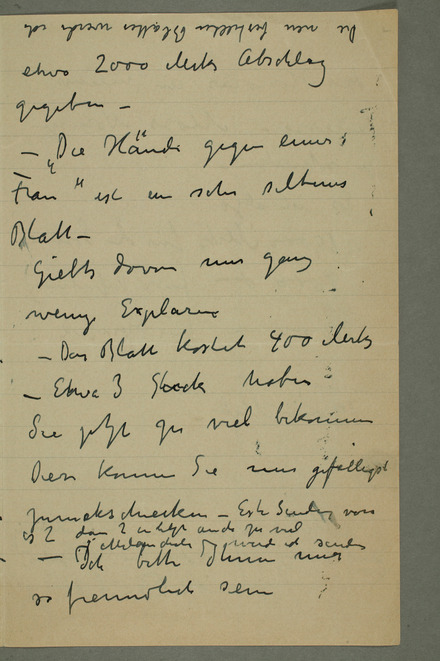 Die neu bestellten Blätter werde ich
etwa 2000 Mark Abschlag
gegeben –
– „Die Hände gegen einer
Frau" ist ein sehr seltenes
Blatt –
Giebts davon nur ganz
wenige Explare
– Das Blatt kostet 400 Mark
– Etwa 3 Stück haben
Sie jetzt zu viel bekommen
Diese können Sie mir gefälligst
zurückschicken – Erste Sendung von
es 2 dann 2 auch zu viel
werde ich senden
– Ich bitte Ihnen mir
so freundlich sein